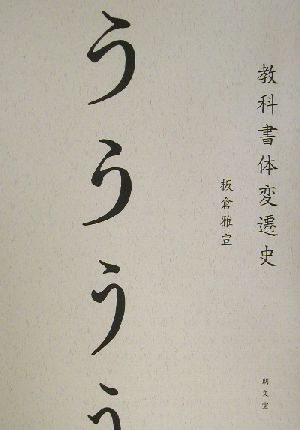 教科書体変遷史
板倉雅宣
朗文堂
う
う
う
う